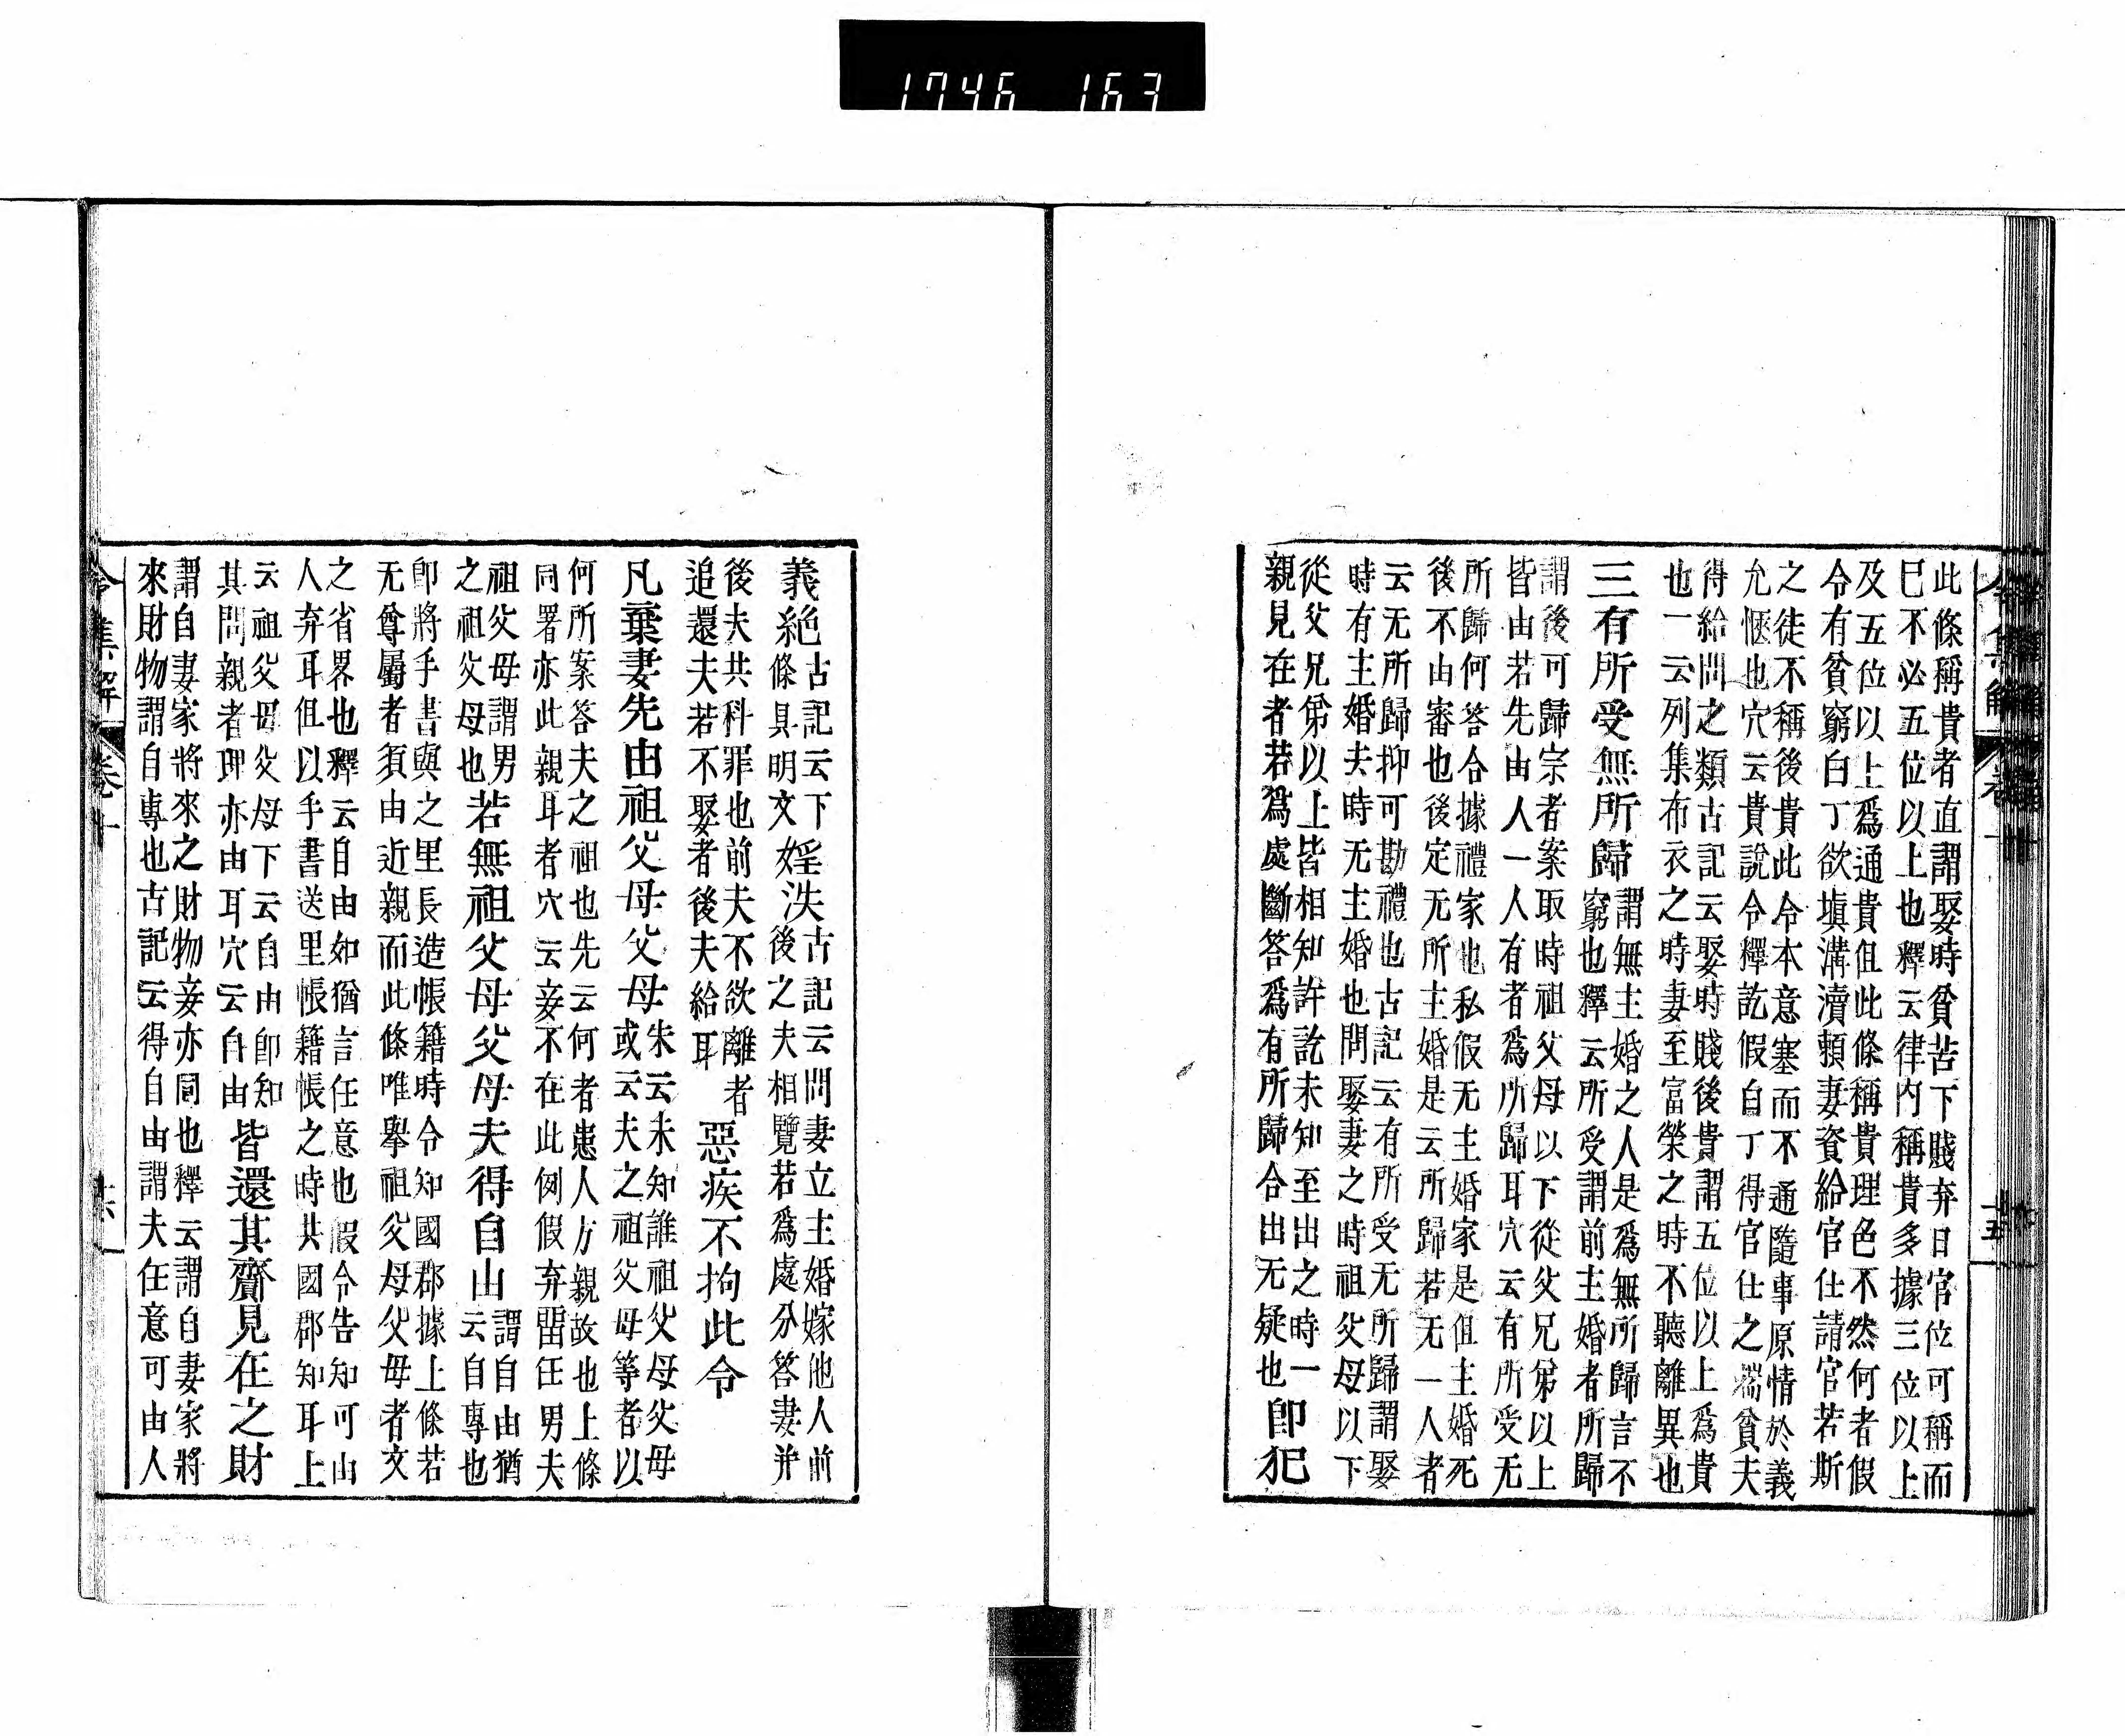 此條稱貴者直謂娶時貧苦下賤弃日官位可稱而
巳不必五位以上也釋云律内稱貴多據三位以上
及五位以上爲通貴但此條稱貴理色不然何者假
令有貧窮白丁欲塡溝瀆頼妻資給官仕請官若斯
之徒不稱後貴此令本意塞而不通隨事原情於義
允愜也穴云貴說令釋訖假自丁得官仕之端貧夫
得給問之類古記云娶時賤後貴謂五位以上爲貴
也一云列集布衣之時妻至富榮之時不聽離異也
三有所受無所歸
謂無主婚之人是爲無所歸言不
窮也釋云所受謂前主婚者所歸
謂後可歸宗者案取時祖父母以下從父兄弟以上
皆由若先由人一人有者爲所歸耳穴云有所受无
所歸何答合據禮家也私假无主婚家是但主婚死
後不由審也後定无所主婚是云所歸若无一人者
云无所歸抑可勘禮也古記云有所受无所歸謂娶
時有主婚夫時无主婚也問娶妻之時祖父母以下
從父兄弟以上皆相知許訖未知至出之時一
親見在者若爲處斷答爲有所歸合出无疑也
即犯
義絶
古記云下
條具明文
婬泆
古記云問妻立主婚嫁他人前
後之夫相覽若爲處分答妻并
後夫共科罪也前夫不欲離者
追還夫若不娶者後夫給耳
惡疾不拘此令
凡棄妻先由祖父母父母
朱云未知誰祖父母父母
或云夫之祖父母等者以
何所案答夫之祖也先云何者患人方親故也上條
同署亦此親耳者穴云妾不在此例假弃留任男夫
祖父母謂男
之祖父母也
若無祖父母父母夫得自由
謂自由猶
云自專也
即將手書與之里長造帳籍時令知國郡據上條若
无尊屬者須由近親而此條唯擧祖父母父母者文
之省畧也釋云自由如猶言任意也假令告知可由
人弃耳但以手書送里帳籍帳之時共國郡知耳上
云祖父母父母下云自由即知
其問親者理亦由耳穴云自由
皆還其齎見在之財
謂自妻家將來之財物妾亦同也釋云謂自妻家將
來財物謂自專也古記云得自由謂夫任意可由人
令集解 卷十